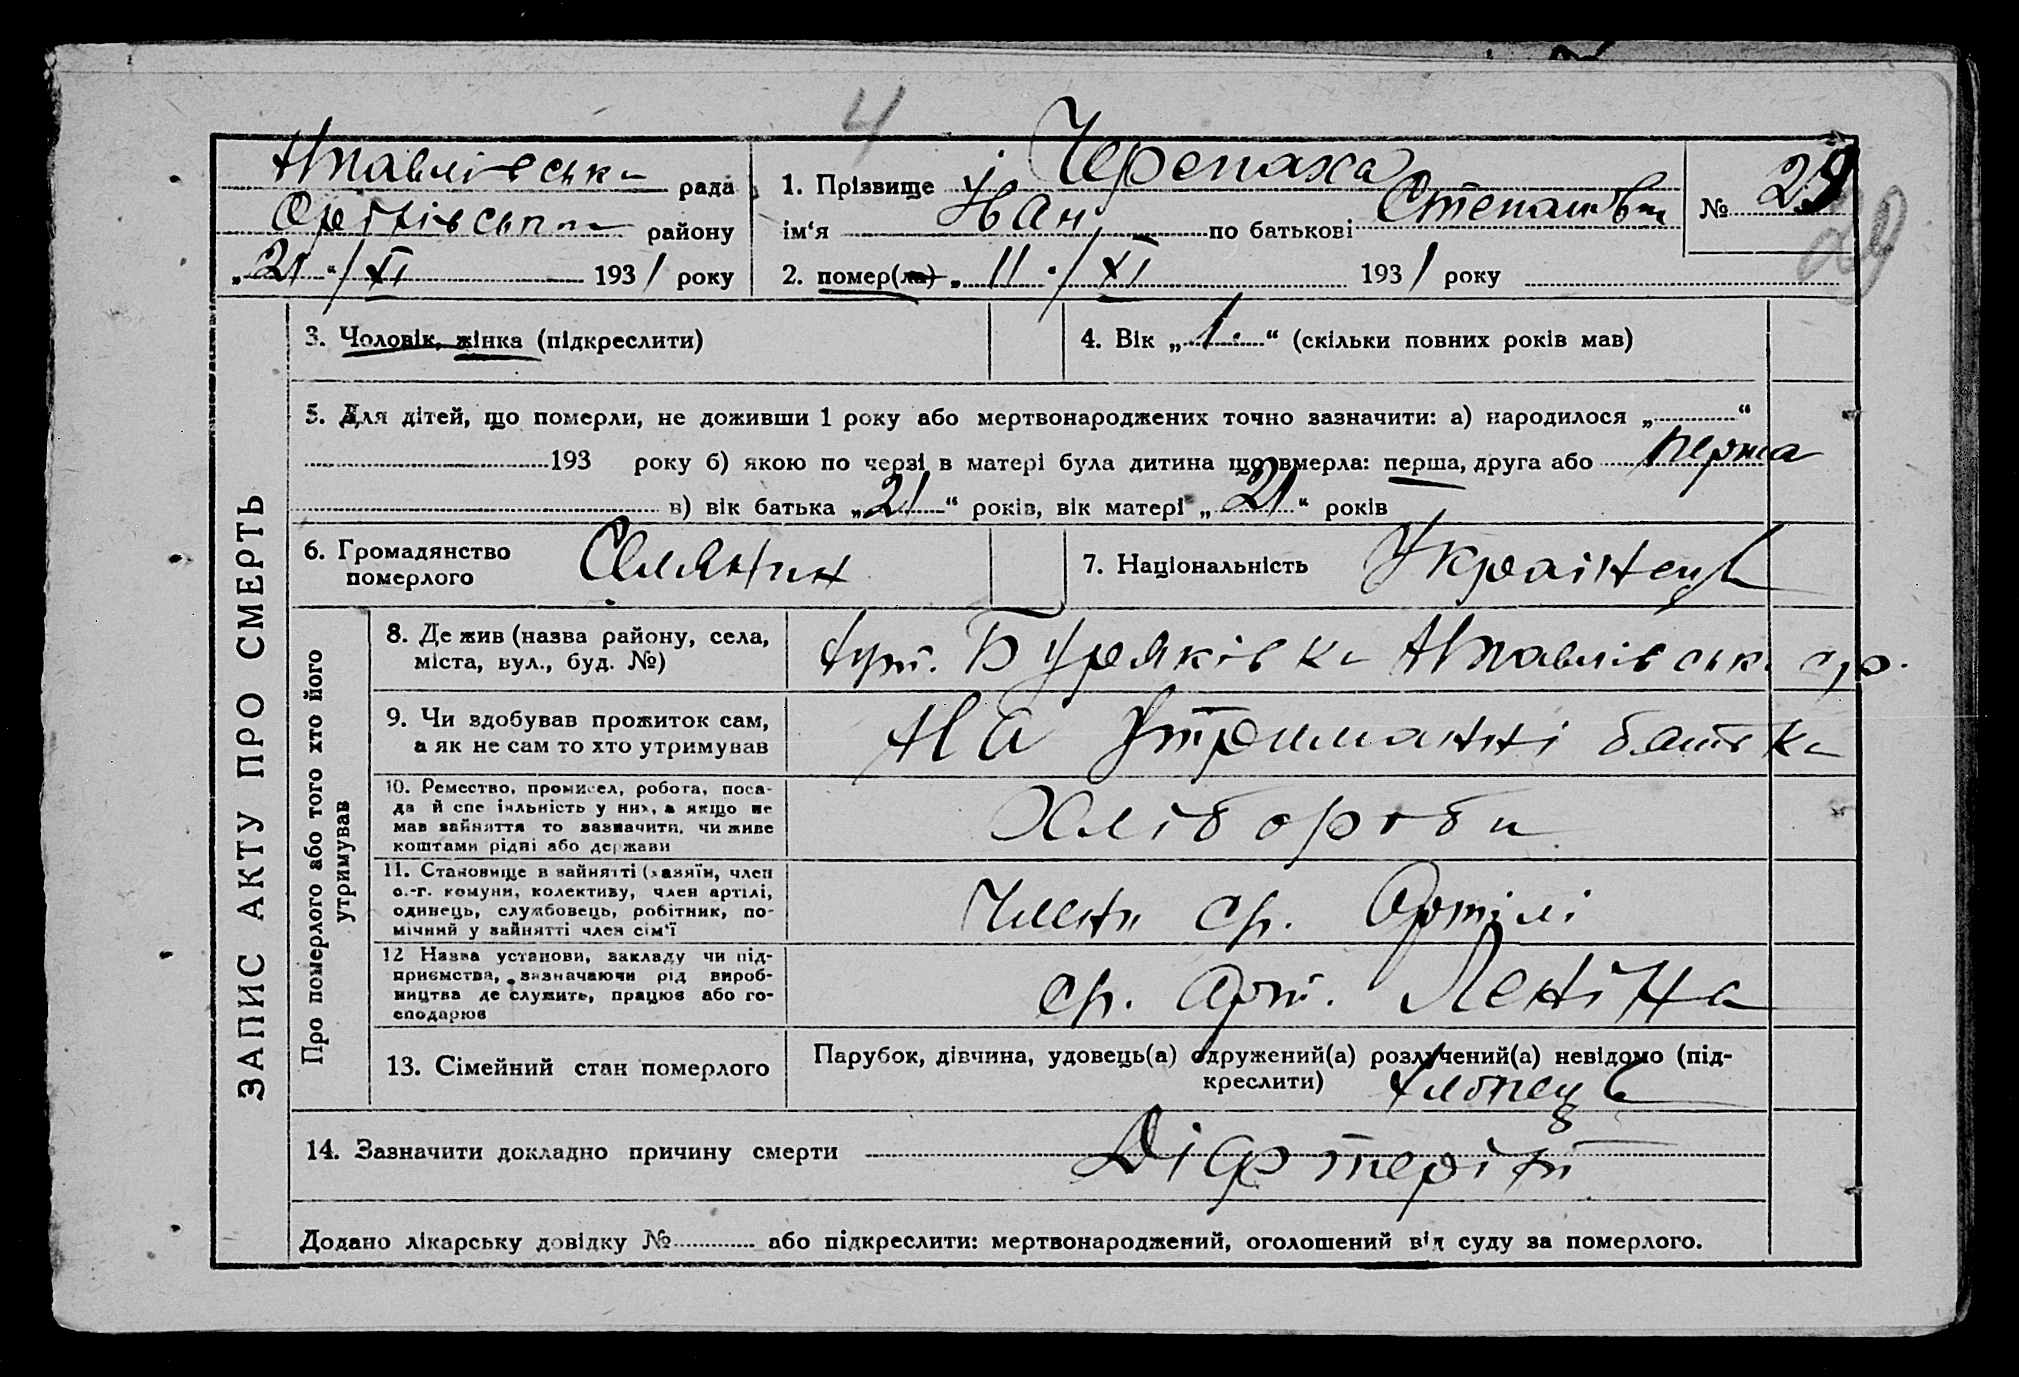 4
Нпавлівська рада
району
„21“/XI 1931 року
1. Прізвище Черепаха
ім‘я Іван по батькові Степанович
2. помер(ла) „11“/XI 1931 року
№ 29
29
ЗАПИС АКТУ ПРО СМЕРТЬ
3. Чоловік, жінка (підкреслити)
4. Вік „1.“ (скільки повних років мав)
5. Для дітей, що померли, не доживши 1 року або мертвонароджених точно зазначити: а) народилося „ “
193 року б) якою по черзі в матері була дитина що вмерла: перша, друга або перша
в) вік батька „21“ років, вік матері „21“ років
6. Громадянство померлого Селянин
7. Національність Українець
Про померлого або того хто його утримував
8. Де жив (назва району, села,
міста, вул., буд. №)
хут. Буряківка Нпавлівська с/р.
9. Чи здобував прожиток сам,
а як не сам то хто утримував
На утриманні батька
10. Ремество, промисел, робота, поса-
да й спеціяльність у них, а якщо не
мав зайняття то зазначити, чи живе
коштами рідні або держави
Хлібороби
11. Становище в зайнятті (хазяїн, член
с.-г. комуни, колективу, член артілі,
одинець, службовець, робітник, по-
мічний у зайнятті член сім‘ї
Члени с/г. Артілі
12 Назва установи, закладу чи під-
приємства, зазначаючи рід вироб-
ництва де служить, працює або го-
сподарює
с/г. Арт. Леніна
13. Сімейний стан померлого
Парубок, дівчина, удовець(а) одружений(а) розлучений(а) невідомо (під-
креслити) хлопець
14. Зазначити докладно причину смерти Діфтеріт
Додано лікарську довідку № або підкреслити: мертвонароджений, оголошений від суду за померлого.